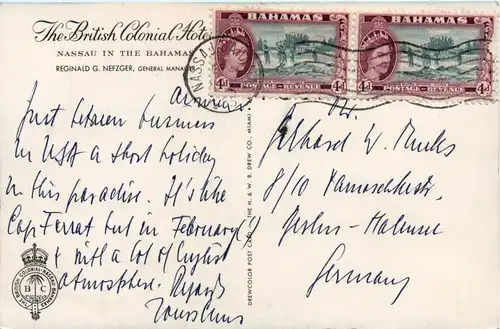 The British Colonial Hotel
NASSAU IN THE BAHAMAS
REGINALD G. NEFZGER, GENERAL MANAGER
BAHAMAS
4d POSTAGE REVENUE 4d
BAHAMAS
4d POSTAGE REVENUE 4d
NASSAU
Just between business
in USA a short holiday
in this paradise. It's like
Cap Ferrat but in February (!)
+ with a lot of English
atmosphere. Regards
THE BRITISH COLONIAL
B C
DREWCOLOR POST CARD — THE H. & W. B. DREW CO., MIAMI
Gerhard W.
8/10
Berlin-Halensee
Germany